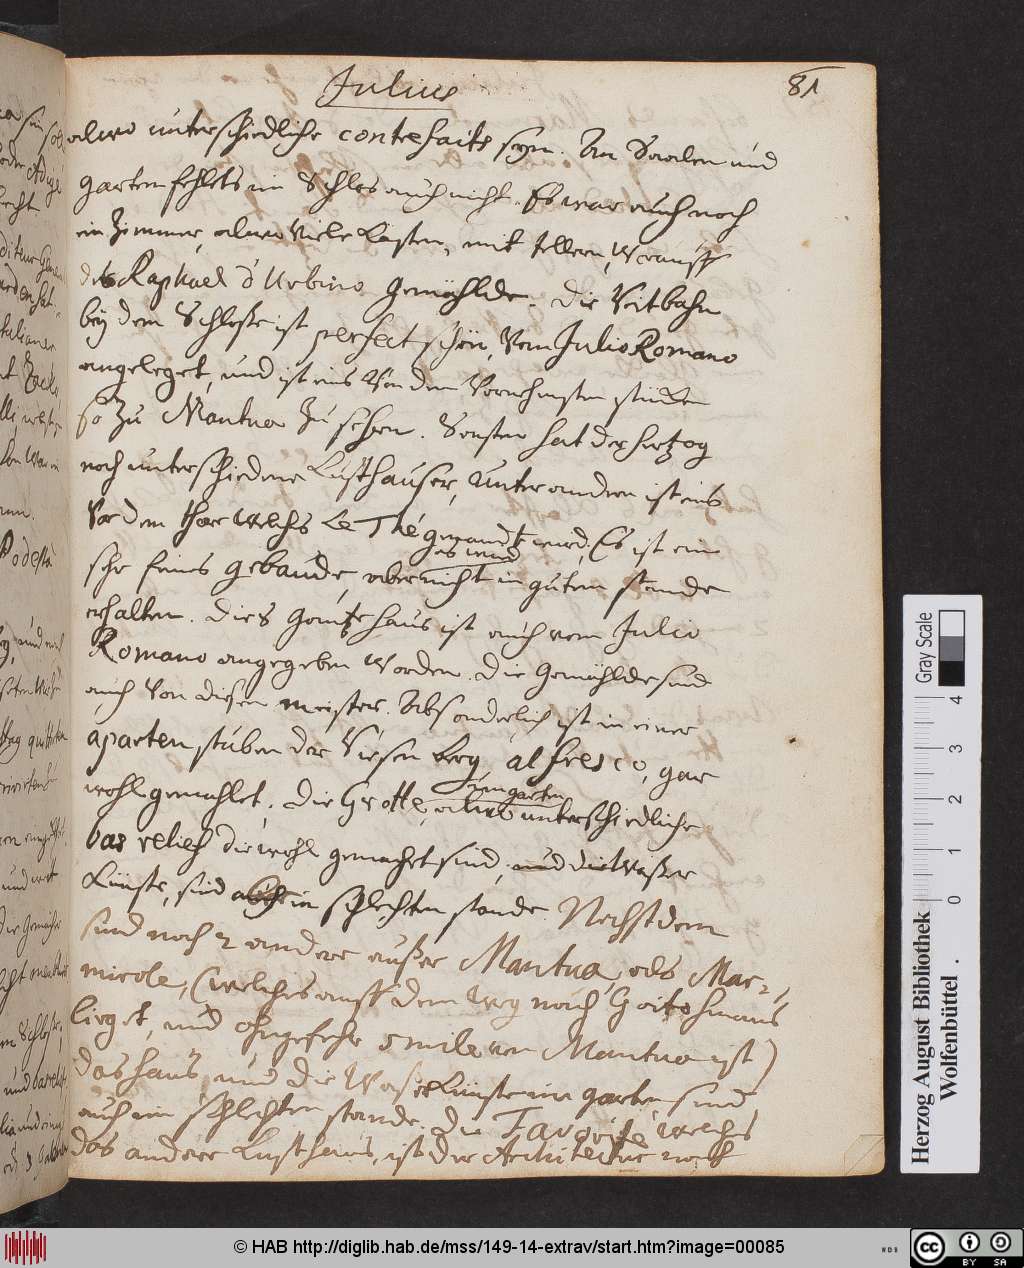 Julius
81
alwo unterschiedliche contrefaits seyn. An Saalen und
garten fehlets im Schlos auch nicht. Es war auch noch
ein Zimmer, alwo viele Kasten, mit tellern, worauff
des Raphael d'Urbino gemählde. Die Reitbahn
bey dem Schloße ist perfect schön, vom Julio Romano
angeleget, und ist eins von den vornehmsten stücken
so zu Mantua zu sehen. Sonsten hat der hertzog
noch unterschiedene Lusthauser, unter andern ist eins
vor dem thor welches Le Thé genandt wird, Es ist ein
es wird
sehr feines gebaude, aber nicht in gutem stande
erhalten. Dies gantze haus ist auch vom Julio
Romano angegeben worden. Die Gemählde sind
auch von diesem meister. Absonderlich ist in einer
aparten stuben der Riesen berg, al fresco, gar
wohl gemahlet. Die Grotte, alwo unterschiedliche
im garten
bas relief die wohl gemacht sind, und die Waßer
Künste, sind in schlechten stande Nechst dem
sind noch 2 andere außer Mantua, als Mar-
mirole, (welches auff dem weg nach Goito hinaus
lieget, und ohngefehr 5 mile von Mantua ist)
das haus und die Waser Künste im garten sind
auch im schlechten stande. Die Favorite welches
das andere Lusthaus, ist der Architectur nach
Gray Scale
0 1 2 3 4
Herzog August Bibliothek
Wolfenbüttel
© HAB http://diglib.hab.de/mss/149-14-extrav/start.htm?image=00085
cc BY SA